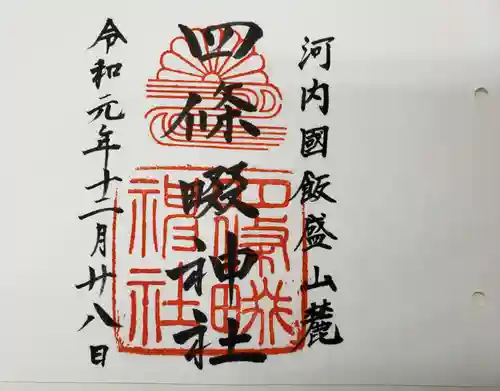 河内國飯盛山麓
四條畷神社
四條畷神社
令和元年十二月廿八日